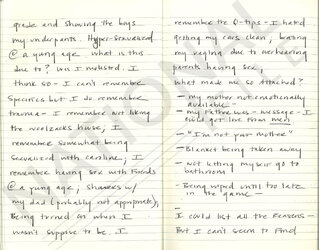 grade and showing the boys
my underpants. Hyper-sexualized
@ a young age. What is this
due to? Was I molested. I
think so - I can't remember
specifics but I do remember
trauma - I remember not liking
the woolzacks house; I
remember somewhat being
sexualized with caroline; I
remember having sex with friends
@ a young age; showers w/
my dad (probably not appropriate).
Being turned on when I
wasn't suppose to be. I
remember the Q-tips - I hated
getting my ears clean,
my vagina due to overhearing
parents having sex,
What made me so attached?
- my mother not emotionally
available -
- my father was - message - I
could get love from men
- "I'm not your mother"
- Blanket being taken away
- not letting myself go to
bathroom
- Being woped until too late
in the game -
-
I could list all the reasons -
But I can't seem to find